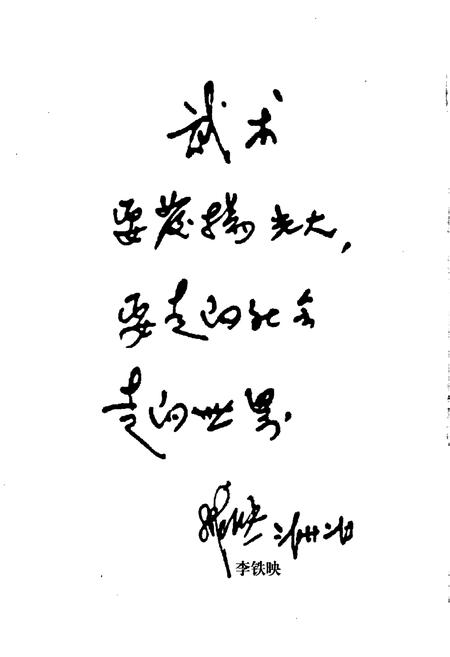 武术
要發揚光大，
要走向社会
走向世界.
李铁映